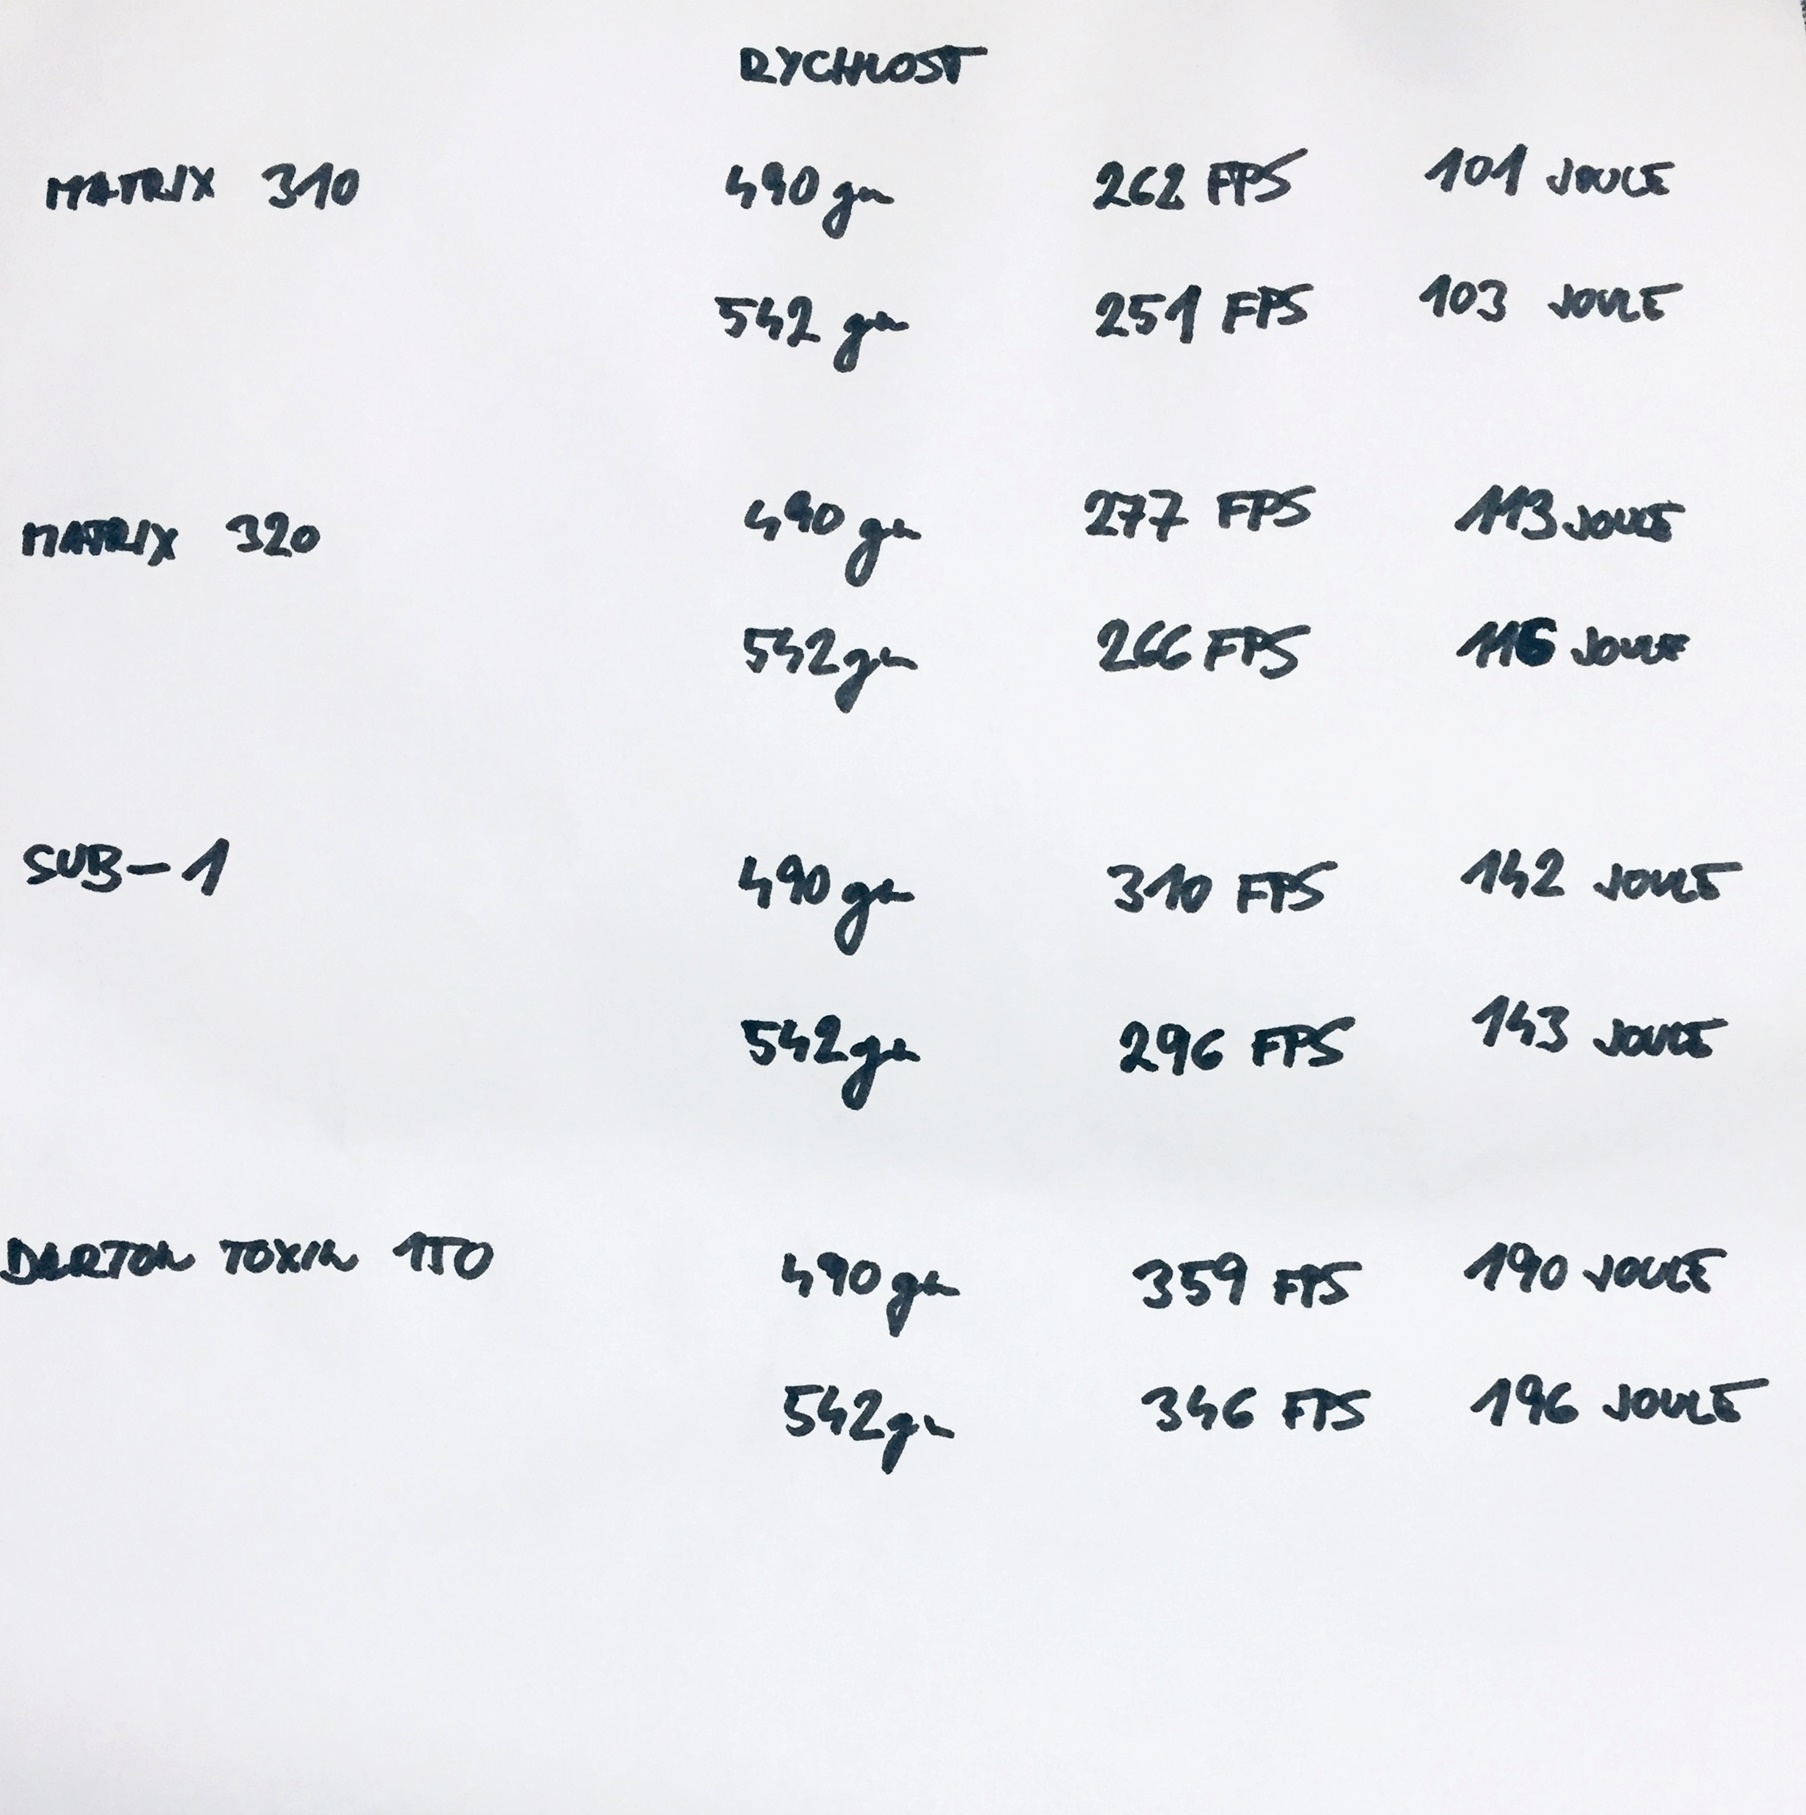 RYCHLOST
MATRIX 310 490 gn 262 FPS 101 JOULE
542 gn 251 FPS 103 JOULE
MATRIX 320 490 gn 277 FPS 113 JOULE
542 gn 266 FPS 116 JOULE
SUB-1 490 gn 310 FPS 142 JOULE
542 gn 296 FPS 143 JOULE
DERTON TOXIN 150 490 gn 359 FPS 190 JOULE
542 gn 346 FPS 196 JOULE